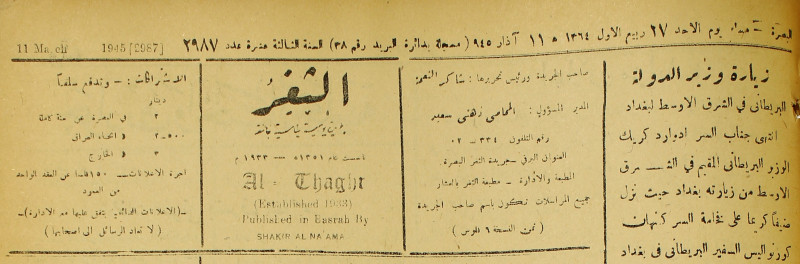 البصرة — مساء يوم الاحد ٢٧ ربيع الاول ١٣٦٤ ه ١١ آذار ٩٤٥ (مسجلة بدائرة البريد رقم ٣٨) السنة الثالثة عشرة عدد ٢٩٨٧
11 March 1945 [2987]
زيارة وزير الدولة
البريطاني في الشرق الاوسط لبغداد
انتهى جناب السر ادوارد كريك
الوزير البريطاني المقيم في الشرق
الاوسط من زيارته بغداد حيث نزل
ضيفا كريما على فخامة السر كنهان
كورنواليس السفير البريطاني في بغداد
صاحب الجريدة ورئيس تحريرها: شاكر النعمة
المدير المسؤول: المحامي زهني سعيد
رقم التلفون ٣٣٤ — ٠٢
العنوان البرقي — جريدة الثغر البصرة
الطبعة والأدارة — مطبعة الثغر بالعشار
جميع المراسلات تكون باسم صاحب الجريدة
(ثمن النسخة ٦ فلوس)
الثغر
جريدة يومية سياسية عامة
اسست عام ١٣٥١ ه — ١٩٣٣ م
Al - Thaghr
(Established 1933)
Published in Basrah By
SHAKIR AL NA'AMA
الاشتراكات: — وتدفع سلفا
دينار
٢ في البصرة عن سنة كاملة
٢-٥٠٠ » انحاء العراق
٣ » الخارج
اجرة الاعلانات — ١٥٠ فلسا عن العقد الواحد
من العمود
—(الاعلانات الدائمية يتفق عليها مع الادارة)—
(لا تعاد الرسائل الى اصحابها)